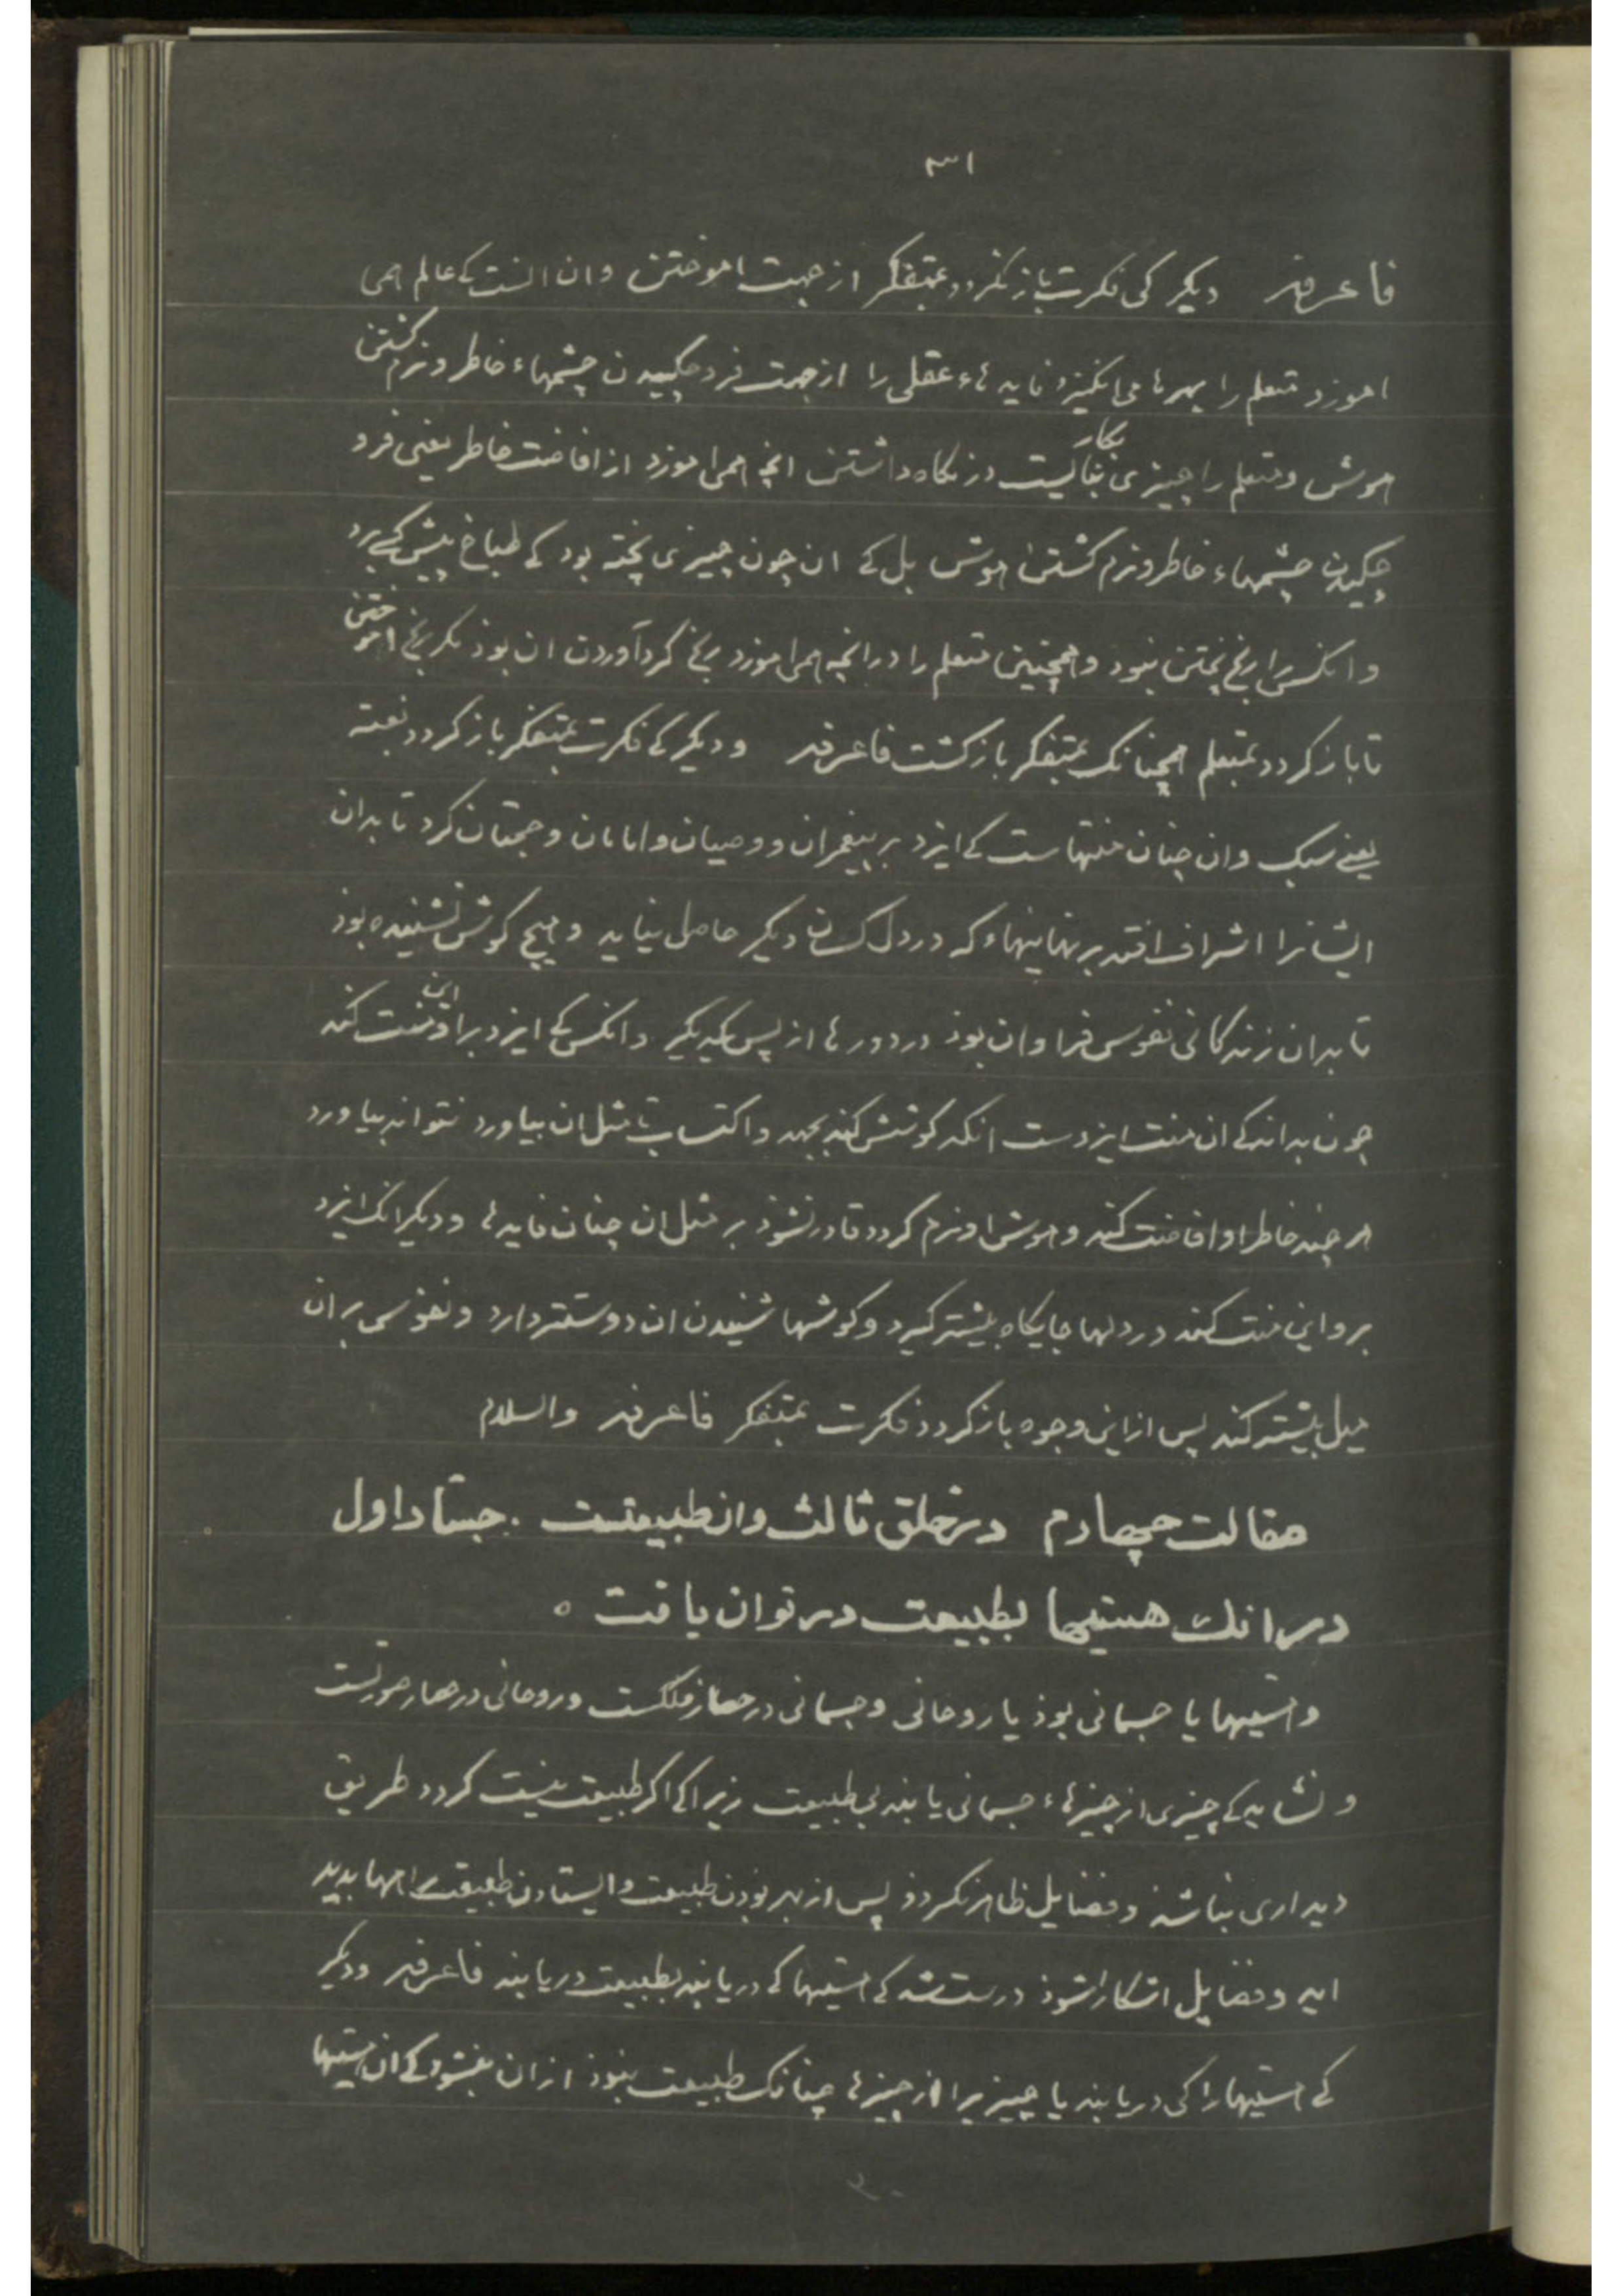 ۳۱
فاعرفه دیگر کی فکرت باز نگردد بمتفکر از جهت اموختن وان انست کے عالم همی
اموزد متعلم را بهرها می انگیزد فایدهاء عقلی را از جهت فرو چکیدن چشمهاء خاطر و نرم گشتن
هوش و متعلم را چیزی بکار نیست در نگاه داشتن انچه همی اموزد از افاضت خاطر یعنی فرو
چکیدن چشمهاء خاطر و نرم گشتن هوش بل کے ان چون چیزی پخته بود کے طباخ پیش کسی برد
وانکس را رنج پختن نبود و همچنین متعلم را در انچه همی اموزد رنج گردآوردن ان بوذ مگر رنج اموختن
تا باز گردد بمتعلم همچنانک بمتفکر باز گشت فاعرفه و دیگر کے فکرت بمتفکر باز گردد بغتة
یعنے سبک وان چنان منتهاست کے ایزد بر پیغمبران و وصیان و امامان و حجتان کرد تا بدان
ایشانرا اشراف افتد بر نهانیهاء که در دل کسان دیگر حاصل نیاید و هیچ گوش نشنیده بوذ
تا بدان زندگانی نفوس فراوان بوذ در دورها از پس یکدیگر وانکس کے ایزد برو این منت کند
چون بداند کے ان منت ایزدست انگه کوشش کند بجهد و اکتساب تا مثل ان بیاورد نتواند بیاورد
هر چند خاطر او افاضت کند و هوش او نرم گردد قادر نشوذ بر مثل ان چنان فایدها و دیگر انک ایزد
برو این منت کند در دلها جایگاه بیشتر گیرد و گوشها شنیدن ان دوستتر دارد و نفوس بر ان
میل بیشتر کند پس از این وجوه باز گردد فکرت بمتفکر فاعرفه والسلام
مقالت چهارم در خلق ثالث وان طبیعتست . جستار اول
در انک هستیها بطبیعت در توان یافت ه
و هستیها یا جسمانی بوذ یا روحانی و جسمانی در حصار فلکست و روحانی در حصار صورتست
و نشاید کے چیزی از چیزهاء جسمانی یابند بی طبیعت زیرا کے اگر طبیعت نیست گردد طریق
دیداری نباشذ و فضایل ظاهر نگردذ پس از بهر بودن طبیعت و ایستادن طبیعت راهها بدید
اید و فضایل اشکارا شوذ درست شد کے هستیها کے دریابند بطبیعت دریابند فاعرفه و دیگر
کے هستیها را کی دریابند یا چیزیرا از چیزها چنانک طبیعت بنوذ از ان بنشود کے ان هستیها